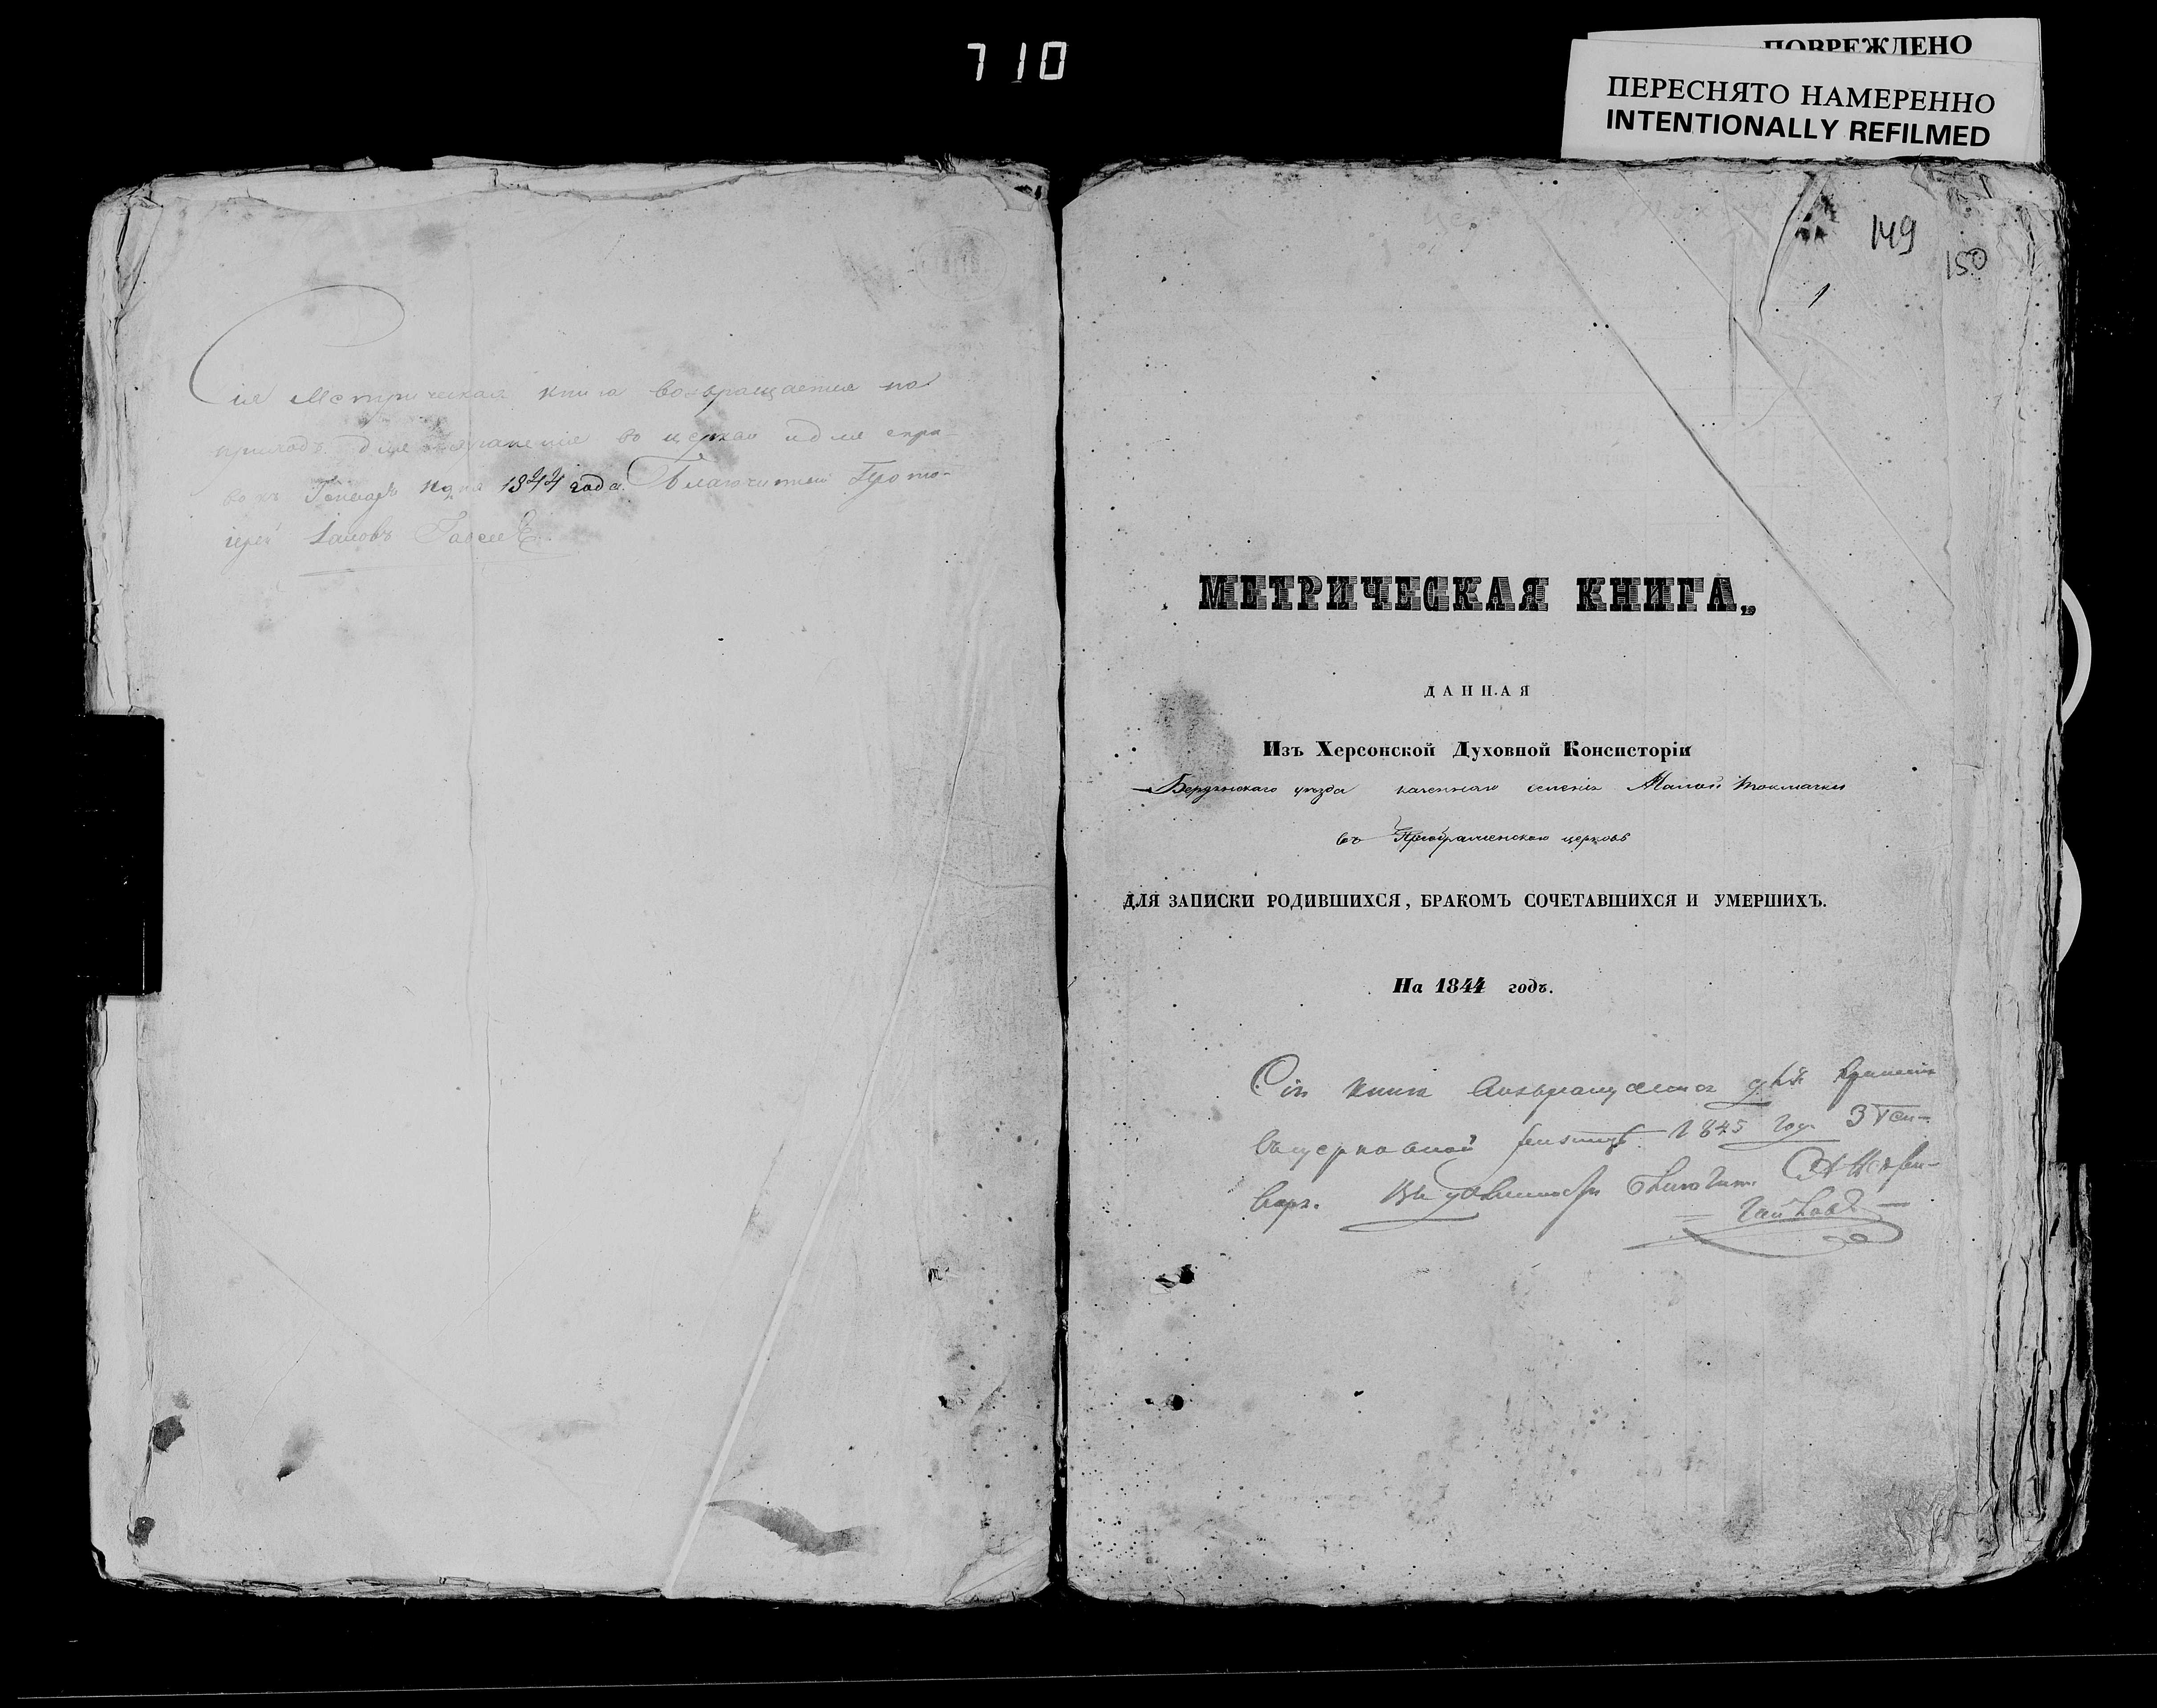 710
ПОВРЕЖДЕНО
ПЕРЕСНЯТО НАМЕРЕННО
INTENTIONALLY REFILMED
149
150
1
Сія Метрическая книга возвращается на
приходъ для храненія во церкви и для спра-
вокъ Генваря 1844 года. Благочинный Прото-
іерей
МЕТРИЧЕСКАЯ КНИГА,
ДАННАЯ
Изъ Херсонской Духовной Консисторіи
Бердянскаго уѣзда казеннаго селенія Малой Токмачки
въ Преображенскою церковь
ДЛЯ ЗАПИСКИ РОДИВШИХСЯ, БРАКОМЪ СОЧЕТАВШИХСЯ И УМЕРШИХЪ.
На 1844 годъ.
Сія книга возвращается для храненія
въ церковной 1845 года 3 Ген-
варя. Благочин.